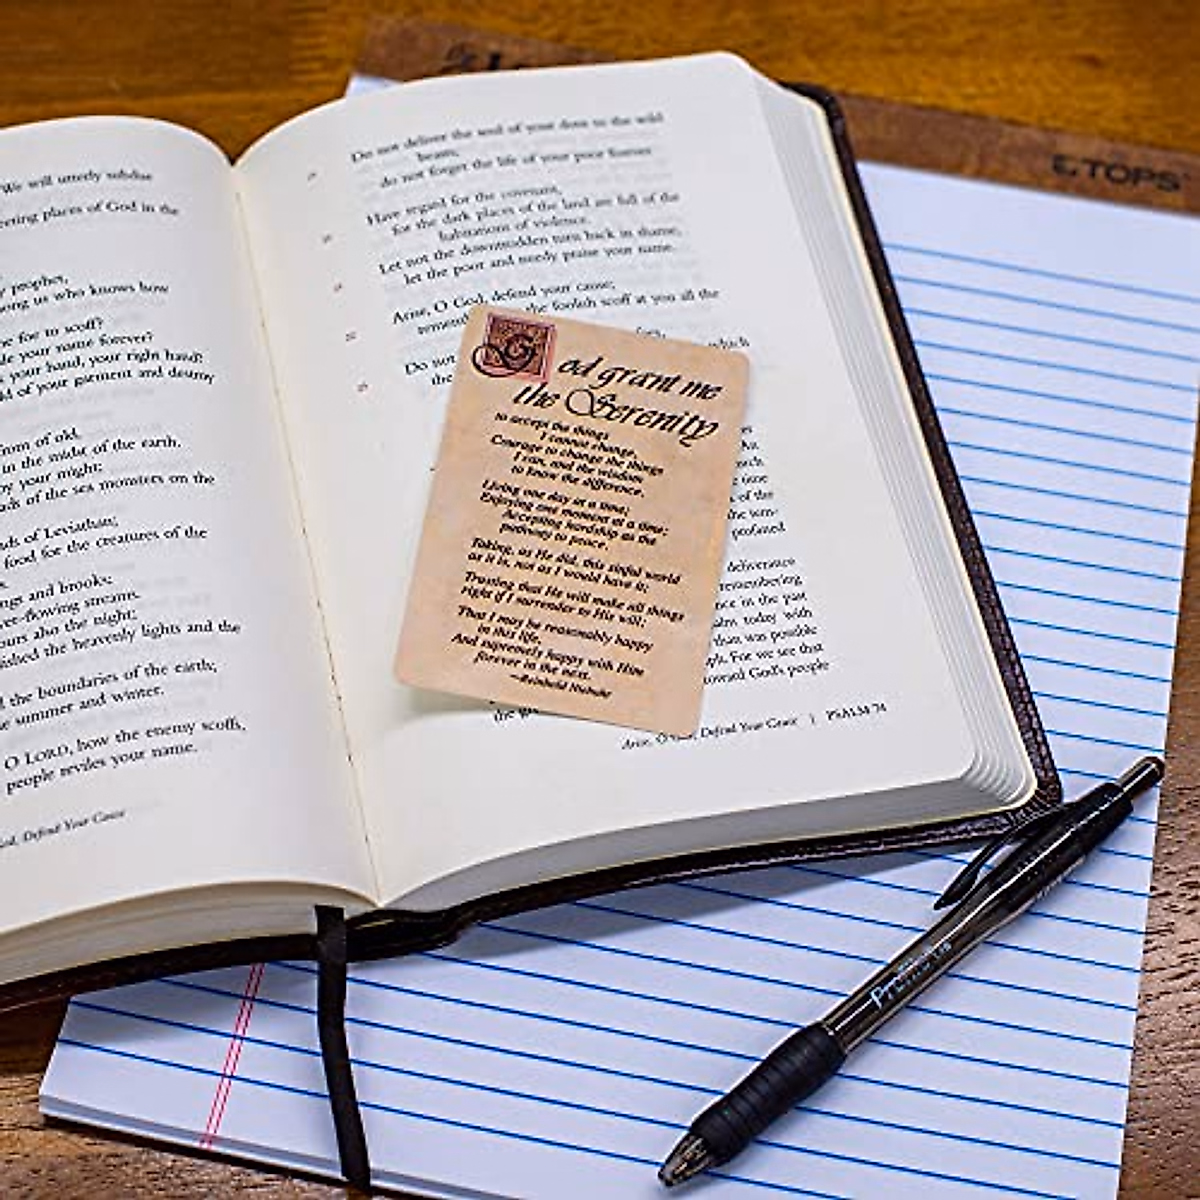 We will utterly subdue
places of God in the
prophet,
us who knows how
foe to scoff?
your name forever?
your hand, your right hand?
of your garment and destroy
of old,
in the midst of the earth.
by your might;
of the sea monsters on the
of Leviathan;
food for the creatures of the
and brooks;
ever-flowing streams.
yours also the night;
the heavenly lights and the
the boundaries of the earth;
summer and winter.
O LORD, how the enemy scoffs,
people reviles your name.
Defend Your Cause
Do not deliver the soul of your dove to the wild
beasts;
do not forget the life of your poor forever
Have regard for the covenant,
for the dark places of the land are full of the
habitations of violence.
Let not the downtrodden turn back in shame;
let the poor and needy praise your name.
Arise, O God, defend your cause;
the foolish scoff at you all the
Do not
which
the
God grant me
the Serenity
to accept the things
I cannot change,
Courage to change the things
I can, and the wisdom
to know the difference.
Living one day at a time;
Enjoying one moment at a time;
Accepting hardship as the
pathway to peace.
Taking, as He did, this sinful world
as it is, not as I would have it;
Trusting that He will make all things
right if I surrender to His will;
That I may be reasonably happy
in this life,
And supremely happy with Him
forever in the next.
—Reinhold Niebuhr
of the
profaned
deliverance
remembering
in the past
today with
than was possible
For we see that
toward God's people
the
Arise, O God, Defend Your Cause | PSALM 74
TOPS